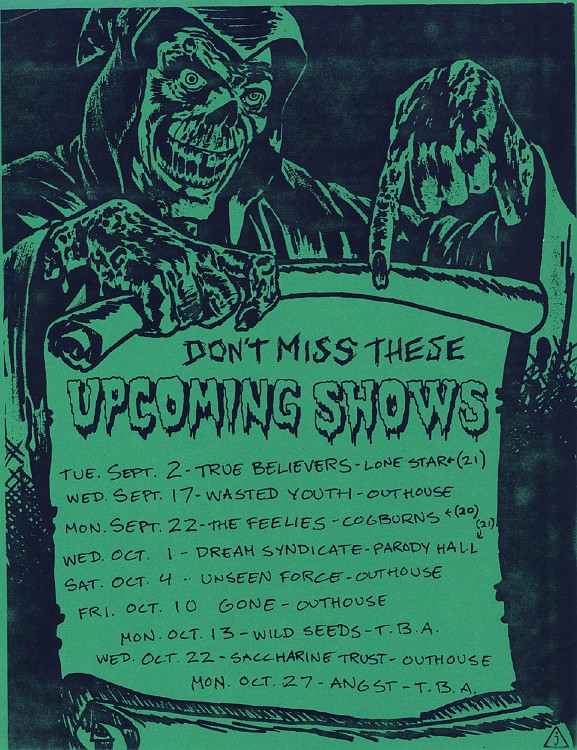 DON'T MISS THESE
UPCOMING SHOWS
TUE. SEPT. 2 - TRUE BELIEVERS - LONE STAR ← (21)
WED. SEPT. 17 - WASTED YOUTH - OUTHOUSE
MON. SEPT. 22 - THE FEELIES - COGBURNS ← (20)
(21)
WED. OCT. 1 - DREAM SYNDICATE - PARODY HALL
SAT. OCT. 4 - UNSEEN FORCE - OUTHOUSE
FRI. OCT. 10 GONE - OUTHOUSE
MON. OCT. 13 - WILD SEEDS - T.B.A.
WED. OCT. 22 - SACCHARINE TRUST - OUTHOUSE
MON. OCT. 27 - ANGST - T.B.A.